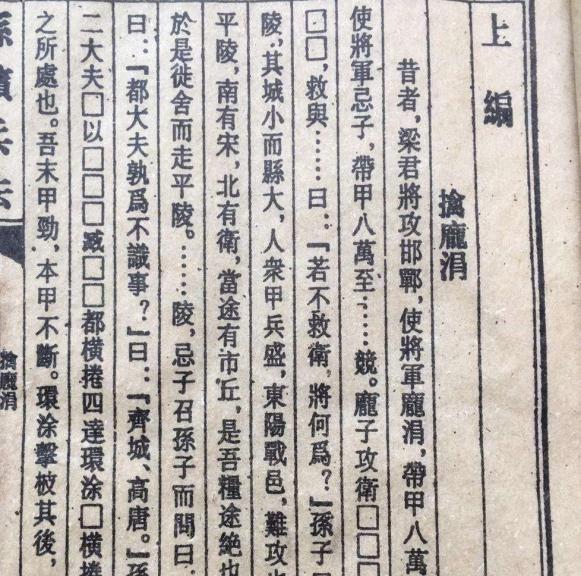 上編
擒龐涓
昔者，梁君將攻邯鄲，使將軍龐涓，帶甲八萬
使將軍忌子，帶甲八萬至……競。龐子攻衛□□□
□□，救與……曰：「若不救衛，將何爲？」孫子
陵，其城小而縣大，人衆甲兵盛，東陽戰邑，難攻
平陵，南有宋，北有衛，當途有市丘，是吾糧途絶也
於是徙舍而走平陵。……陵，忌子召孫子而問曰
曰：「都大夫孰爲不識事？」曰：「齊城、高唐。」孫
二大夫□以□□□臧□□都橫捲四達環涂□橫捲
之所處也。吾末甲勁，本甲不斷。環涂擊柀其後，
孫臏兵法
擒龐涓